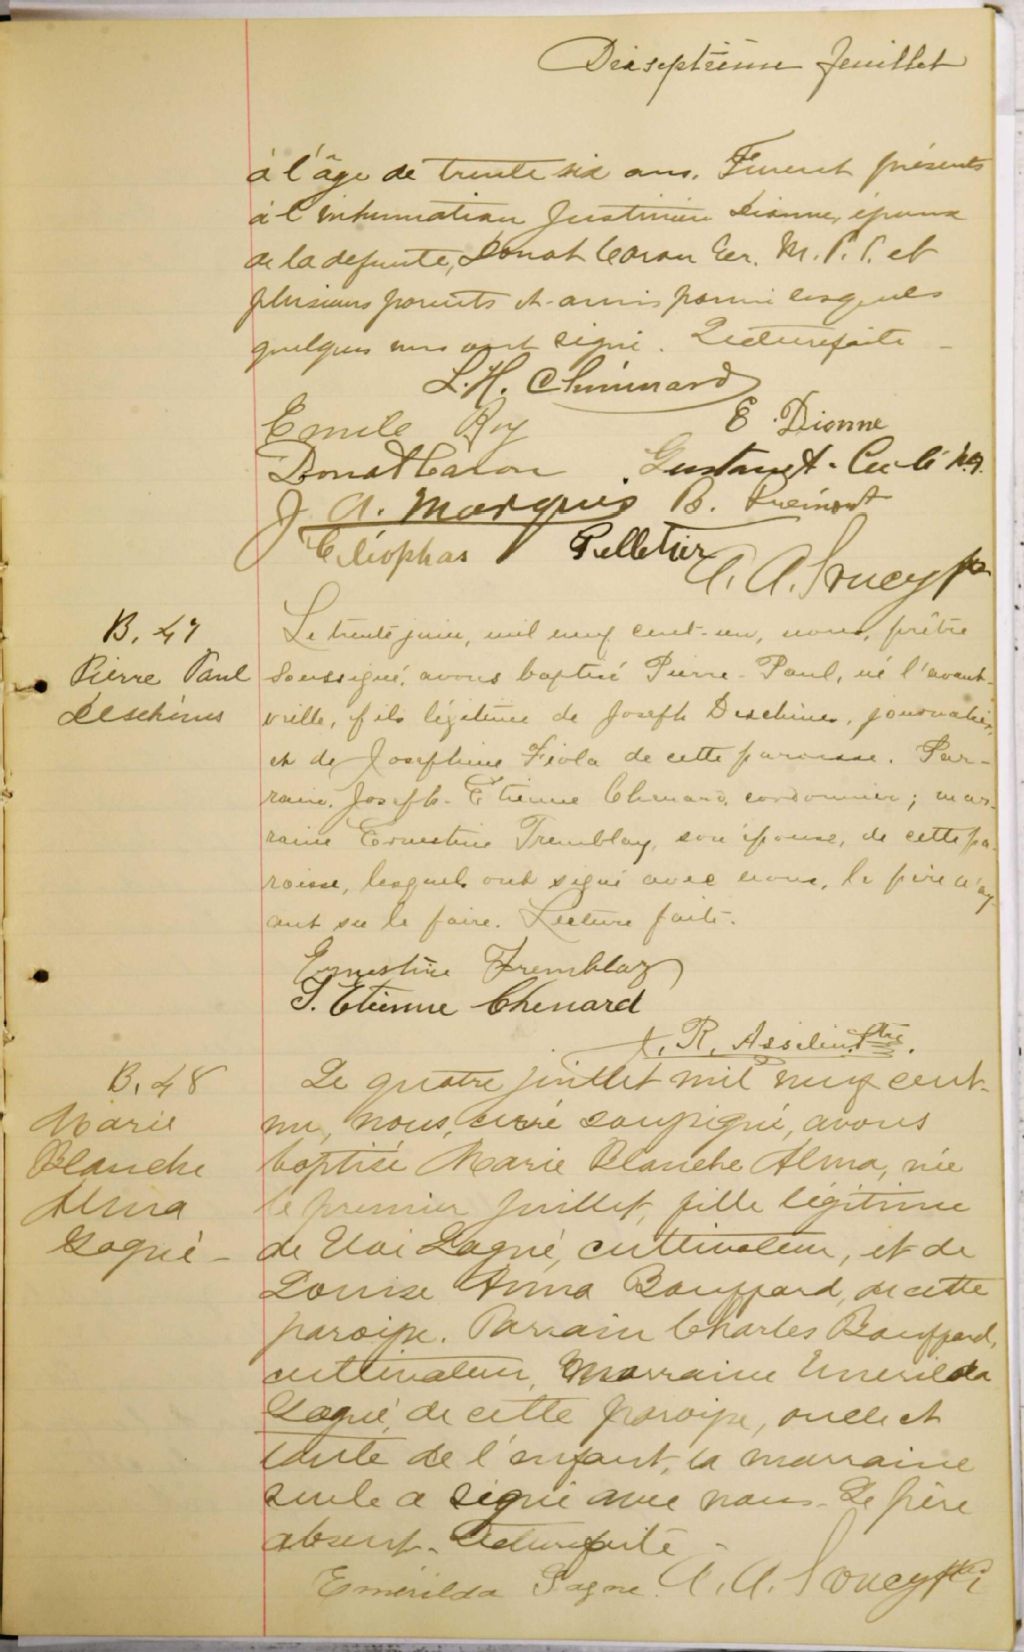 Dixseptième feuillet
à l'âge de trente six ans. Furent présents
à l'inhumation Justinien Dionne, époux
de la defunte, Donat Caron Ecr. M.P.P. et
plusieurs parents et amis parmi lesquels
quelques uns ont signé. Lecture faite
L. H. Chouinard
Emile Roy
E. Dionne
Donat Caron
J. A. Marquis
B.
Cléophas Pelletier
A. A. Soucy ptre
B. 47
Pierre Paul
Deschênes
Le trente juin, mil neuf cent-un, nous, prêtre
soussigné, avons baptisé Pierre-Paul, né l'avant-
veille, fils légitime de Joseph Deschênes, journalier,
et de Joséphine Fiola de cette paroisse. Par-
rain, Joseph-Etienne Chenard, cordonnier; mar-
raine Ernestine Tremblay, son épouse, de cette pa-
roisse, lesquels ont signé avec nous, le père n'ay-
ant su le faire. Lecture faite.
Ernestine Tremblay
J. Etienne Chenard
J. R. Asselin Ptre.
B. 48
Marie
Blanche
Alma
Gagné
Le quatre juillet mil neuf cent-
un, nous, curé soussigné, avons
baptisé Marie Blanche Alma, née
le premier juillet, fille légitime
de Eloi Gagné, cultivateur, et de
Louise Anna Bouffard, de cette
paroisse. Parrain Charles Bouffard,
cultivateur, Marraine Emerilda
Gagné, de cette paroisse, oncle et
tante de l'enfant, la marraine
seule a signé avec nous. Le père
absent. Lecture faite
Emérilda Gagne A. A. Soucy ptre